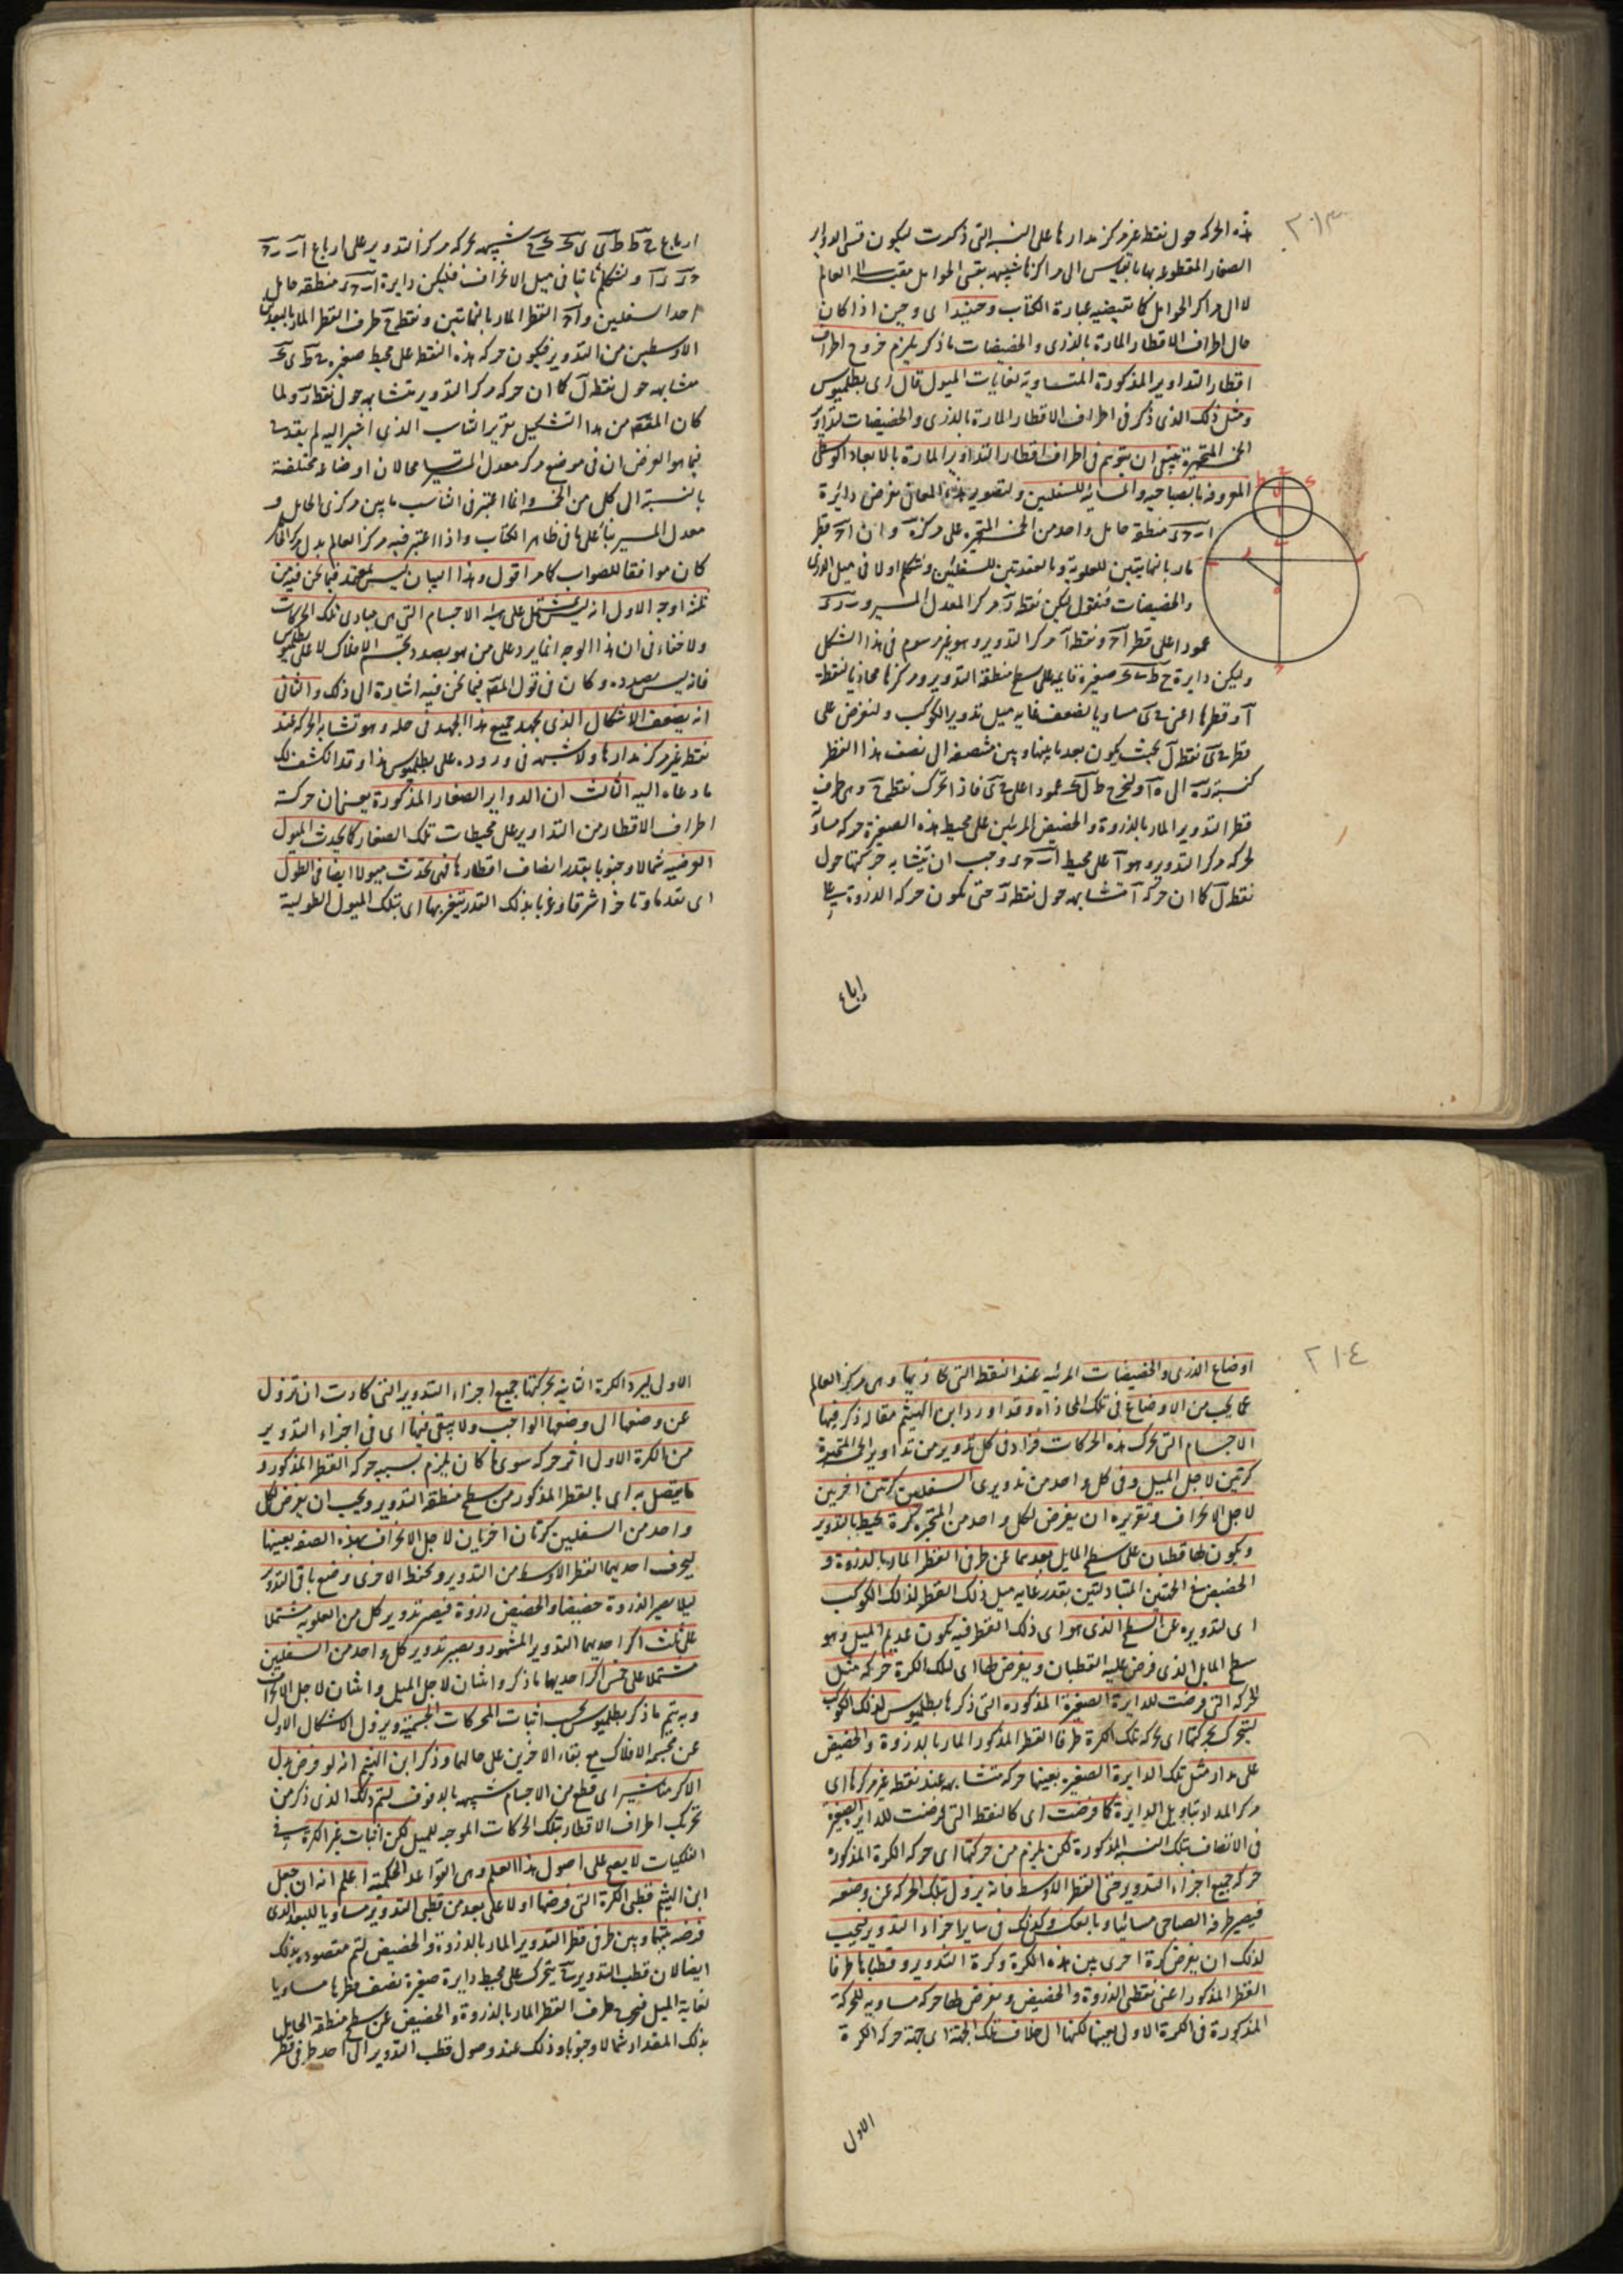 ٢١٣
هذه الحركه حول نقطة غير مركز مدارها على النسبه التى ذكرت ليكون قسى الدواير
الصغار المقطوعه بها بالقياس الى مراكزها شبيهه بقسى الحوامل مقيسة الى العالم
لا الى مراكز الحوامل كما تقتضيه عبارة الكتاب وحينئذ اى وحين اذا كان
حال اطراف الاقطار المارة بالذرى والحضيضات ما ذكر يلزم خروج اطراف
اقطار التداوير المذكورة المتساوية لغايات الميول قال اى بطلميوس
ومثل ذلك الذى ذكر فى اطراف الاقطار المارة بالذرى والحضيضات لتداوير
الخمسة المتحيرة ينبغى ان يتوهم فى اطراف اقطار التداوير المارة بالابعاد الوسطى
المعروفة بالصباحيه والمسائيه للسفليين ولتصوير هذه المعانى نفرض دائرة
ا ب ح د منطقه حامل واحد من الخمسه المتحيره على مركز ه وان ا ح قطر
مار بالنهايتين للعلوية وبالعقدتين للسفليين ونتكلم اولا فى ميل الذرى
والحضيضات فنقول ليكن نقطة ر مركز المعدل المسير و ب ر د
عمودا على قطر ا ح ونقطة ا مركز التدوير وهو غير مرسوم فى هذا الشكل
وليكن دايرة ح ط ى ك صغيرة قايمه على سطح منطقة التدوير ومركزها محاذيا لنقطة
ا وقطرها اعنى ح ى مساويا لضعف غايه ميل تدوير الكوكب ولنفرض على
قطر ح ى نقطة ل بحيث يكون بعد ما بينها وبين منتصفه الى نصف هذا القطر
كنسبة ر ه الى ه ا ولنخرج ط ل ك عمودا على ح ى فاذا تحرك نقطة ح وهى طرف
قطر التدوير المار بالذروة والحضيض المرئيين على محيط هذه الصغيرة حركه مساوية
لحركه مركز التدوير وهو ا على محيط ا ب ح د وجب ان يتشابه حركتها حول
نقطة ل كما ان حركه ا متشابهه حول نقطه ر حتى يكون حركه الذروة على
ارباع
ارباع ح ط ط ى ى ك ك ح شبيهه بحركه مركز التدوير على ارباع ا ب ب ح
ح د د ا ولنتكلم ثانيا فى ميل الانحراف فليكن دايرة ا ب ح د منطقه حامل
احد السفليين و ا ح القطر المار بالنهايتين ونقطة ح طرف القطر المار بالبعدين
الاوسطين من التدوير فيكون حركه هذه النقطة على محيط صغيره ح ط ى ك
متشابهه حول نقطه ل كما ان حركه مركز التدوير متشابهه حول نقطه ر ولما
كان المقصود من هذا التشكيل تقرير التناسب الذى اشير اليه لم يقدح
فيما هو الغرض ان فى موضع مركز معدل المسير مجالان اوضاعا مختلفة
بالنسبة الى كل من الخمسة وانما اعتبر فى التناسب ما بين مركزى الحامل و
معدل المسير بناء على ما فى ظاهر الكتاب واذا اعتبر فيه مركز العالم بدل مركز الحامل
كان موافقا للصواب كما مر اقول وهذا البيان ليس بمعتد فيما نحن فيه من
ثلثة اوجه الاول انه ليس يشتمل على هيئه الاجسام التى هى مبادى تلك الحركات
ولا خفاء فى ان هذا الوجه انما يرد على من هو بصدد تجسيم الافلاك لا على بطلميوس
فانه ليس بصدده وكان فى قول المصنف فيما نحن فيه اشارة الى ذلك والثانى
انه يضعف الاشكال الذى يجهد جميع هذا الجهد فى حله وهو تشابه الحركه عند
نقطه غير مركز مدارها ولا شبهه فى وروده على بطلميوس هذا وقد انكشف لك
ما دعاه اليه الثالث ان الدواير الصغار المذكورة يعنى ان حركه
اطراف الاقطار من التداوير على محيطات تلك الصغار كما يحدث الميول
العرضيه شمالا وجنوبا بقدر انصاف اقطارها فهى تحدث ميولا ايضا فى الطول
اى تقدما وتاخرا شرقا وغربا بذلك القدر يتغير بها اى بتلك الميول الطولية
٢١٤
اوضاع الذرى والحضيضات المرئيه عند النقط التى تحاذيها وهى مركز العالم
عما يجب من الاوضاع فى تلك المحاذاه وقد اورد ابن الهيثم مقاله ذكر فيها
الاجسام التى تحرك هذه الحركات فزاد فى كل تدوير من تداوير المتحيرة
كرتين لاجل الميل وفى كل واحد من تدويرى السفليين كرتين اخريين
لاجل الانحراف وتقريره ان يفرض لكل واحد من المتحيره كرة محيط بالتدوير
ويكون لها قطبان على سطح المايل بعدهما عن طرفى القطر المار بالذروة و
الحضيض فى الجهتين المتبادلتين بقدر غايه ميل ذلك القطر لذلك الكوكب
اى لتدويره عن السطح الذى هو اى ذلك القطر فيه يكون عديم الميل وهو
سطح المايل الذى فرض عليه القطبان ويفرض لها اى لتلك الكرة حركه مثل
الحركه التى فرضت للدايرة الصغيرة المذكوره التى ذكرها بطلميوس لذلك الكوكب
ليتحرك بحركتها اى بحركه تلك الكرة طرفا القطر المذكور المار بالذروة والحضيض
على مدار مثل تلك الدايرة الصغيره بعينها حركه متشابهه عند نقطه غير مركزها اى
مركز المدار بتاويل الدايرة كما فرضت اى كالنقطه التى فرضت للداير الصغيرة
فى الاتصاف بتلك النسبه المذكورة لكن يلزم من حركتها اى حركه الكرة المذكورة
حركه جميع اجزاء التدوير حتى القطر الاوسط فانه يزول بتلك الحركه عن وضعه
فيصير طرفه الصباحى مسائيا وبالعكس وكذلك فى ساير اجزاء التدوير فيجب
لذلك ان يفرض كرة اخرى بين هذه الكرة وكرة التدوير وقطباها طرفا
القطر المذكور اعنى نقطتى الذروة والحضيض ويفرض لها حركه مساويه للحركة
المذكورة فى الكرة الاولى بعينها لكنها الى خلاف تلك الجهة اى جهة حركه الكرة
الاولى
الاولى ليرد الكرة الثانيه بحركتها جميع اجزاء التدوير التى كادت ان تزول
عن وضعها الى وضعها الواجب ولا يبقى فيها اى فى اجزاء التدوير
من الكرة الاولى اثر حركه سوى ما كان يلزم بسببه حركه القطر المذكور و
ما يتصل به اى بالقطر المذكور من سطح منطقة التدوير ويجب ان يفرض لكل
واحد من السفليين كرتان اخريان لاجل الانحراف بهذه الصفه بعينها
ليحرف احديهما القطر الاوسط من التدوير ويحفظ الاخرى وضع باقى التدوير
ليلا يصير الذروة حضيضا والحضيض ذروة فيصير تدوير كل من العلويه مشتملا
على ثلث اكر احديها التدوير المشهور ويصير تدوير كل واحد من السفليين
مشتملا على خمس اكر احديها ما ذكر واثنان لاجل الميل واثنان لاجل الانحراف
وبه يتم ما ذكر بطلميوس بحسب اثبات المحركات الجسمية ويزول الاشكال الاول
عن مجسمه الافلاك مع بقاء الاخرين على حالهما وذكر ابن الهيثم انه لو فرض بدل
الاكر مناشير اى قطع من الاجسام شبيهه بالدفوف ليتم ذلك الذى ذكر من
تحرك اطراف الاقطار بتلك الحركات الموجبه للميل لكن اثبات غير الكرة فى
الفلكيات لا يصح على اصول هذا العلم وهى القواعد الحكمية اعلم انه ان جعل
ابن الهيثم قطبى الكرة التى فرضها اولا على بعد من قطبى التدوير مساويا للبعد الذى
فرضه بينهما وبين طرفى قطر التدوير المار بالذروة والحضيض لتم مقصوده بذلك
ايضا لان قطب التدوير يتحرك على محيط دايرة صغيرة نصف قطرها مساويا
لغاية الميل فيخرج طرف القطر المار بالذروة والحضيض عن سطح منطقة الحامل
بذلك المقدار شمالا وجنوبا وذلك عند وصول قطب التدوير الى احد طرفى قطر